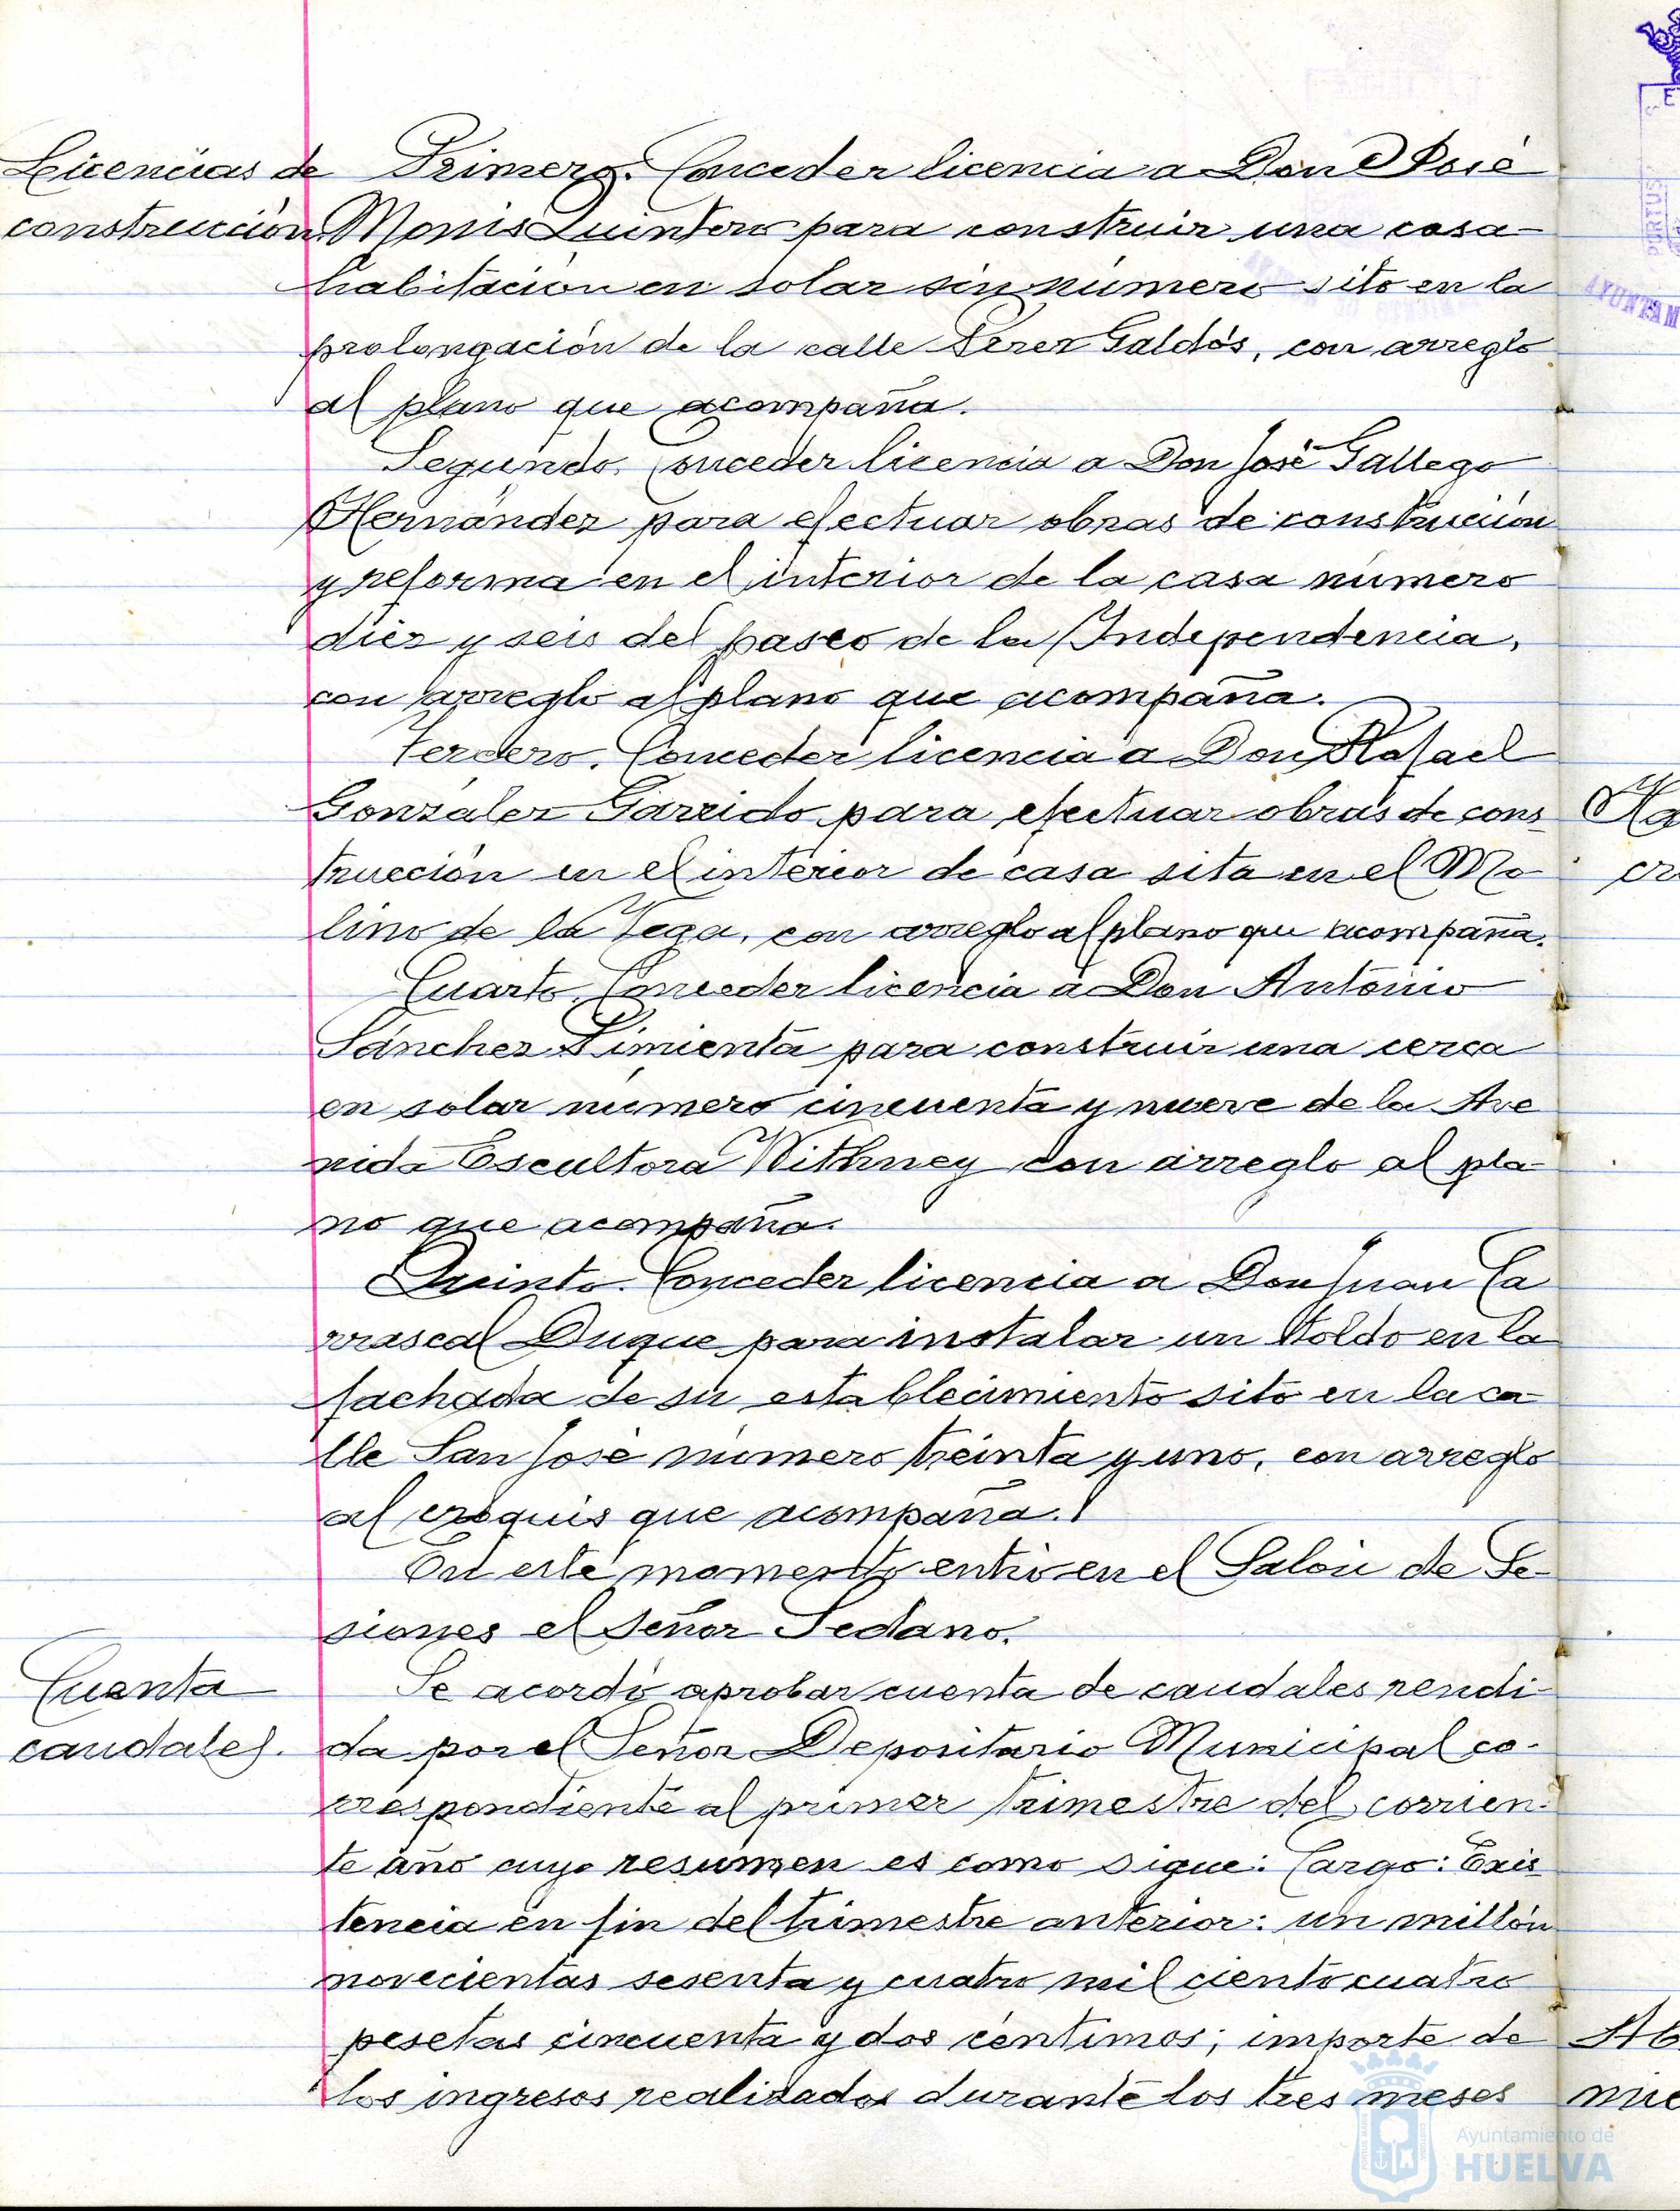 Licencias de
construcción
Primero. Conceder licencia a Don José
Monis Quintero para construir una casa-
habitación en solar sin número sito en la
prolongación de la calle Perez Galdós, con arreglo
al plano que acompaña.
Segundo. Conceder licencia a Don José Gallego
Hernández para efectuar obras de construcción
y reforma en el interior de la casa número
diez y seis del paseo de la Independencia,
con arreglo al plano que acompaña.
Tercero. Conceder licencia a Don Rafael
González Garrido para efectuar obras de cons-
trucción en el interior de casa sita en el Mo-
lino de la Vega, con arreglo al plano que acompaña.
Cuarto. Conceder licencia a Don Antonio
Sánchez Pimienta para construir una cerca
en solar número cincuenta y nueve de la Ave
nida Escultora Withney con arreglo al pla-
no que acompaña.
Quinto. Conceder licencia a Don Juan Ca
rrascal Duque para instalar un toldo en la
fachada de su establecimiento sito en la ca-
lle San José número treinta y uno, con arreglo
al croquis que acompaña.
En este momento entró en el Salón de Se-
siones el señor Sedano.
Cuenta
caudales.
Se acordó aprobar cuenta de caudales rendi-
da por el Señor Depositario Municipal co-
rrespondiente al primer trimestre del corrien-
te año cuyo resumen es como sigue: Cargo: Exis
tencia en fin del trimestre anterior: un millón
novecientas sesenta y cuatro mil ciento cuatro
pesetas cincuenta y dos céntimos; importe de
los ingresos realizados durante los tres meses
Ayuntamiento de
HUELVA